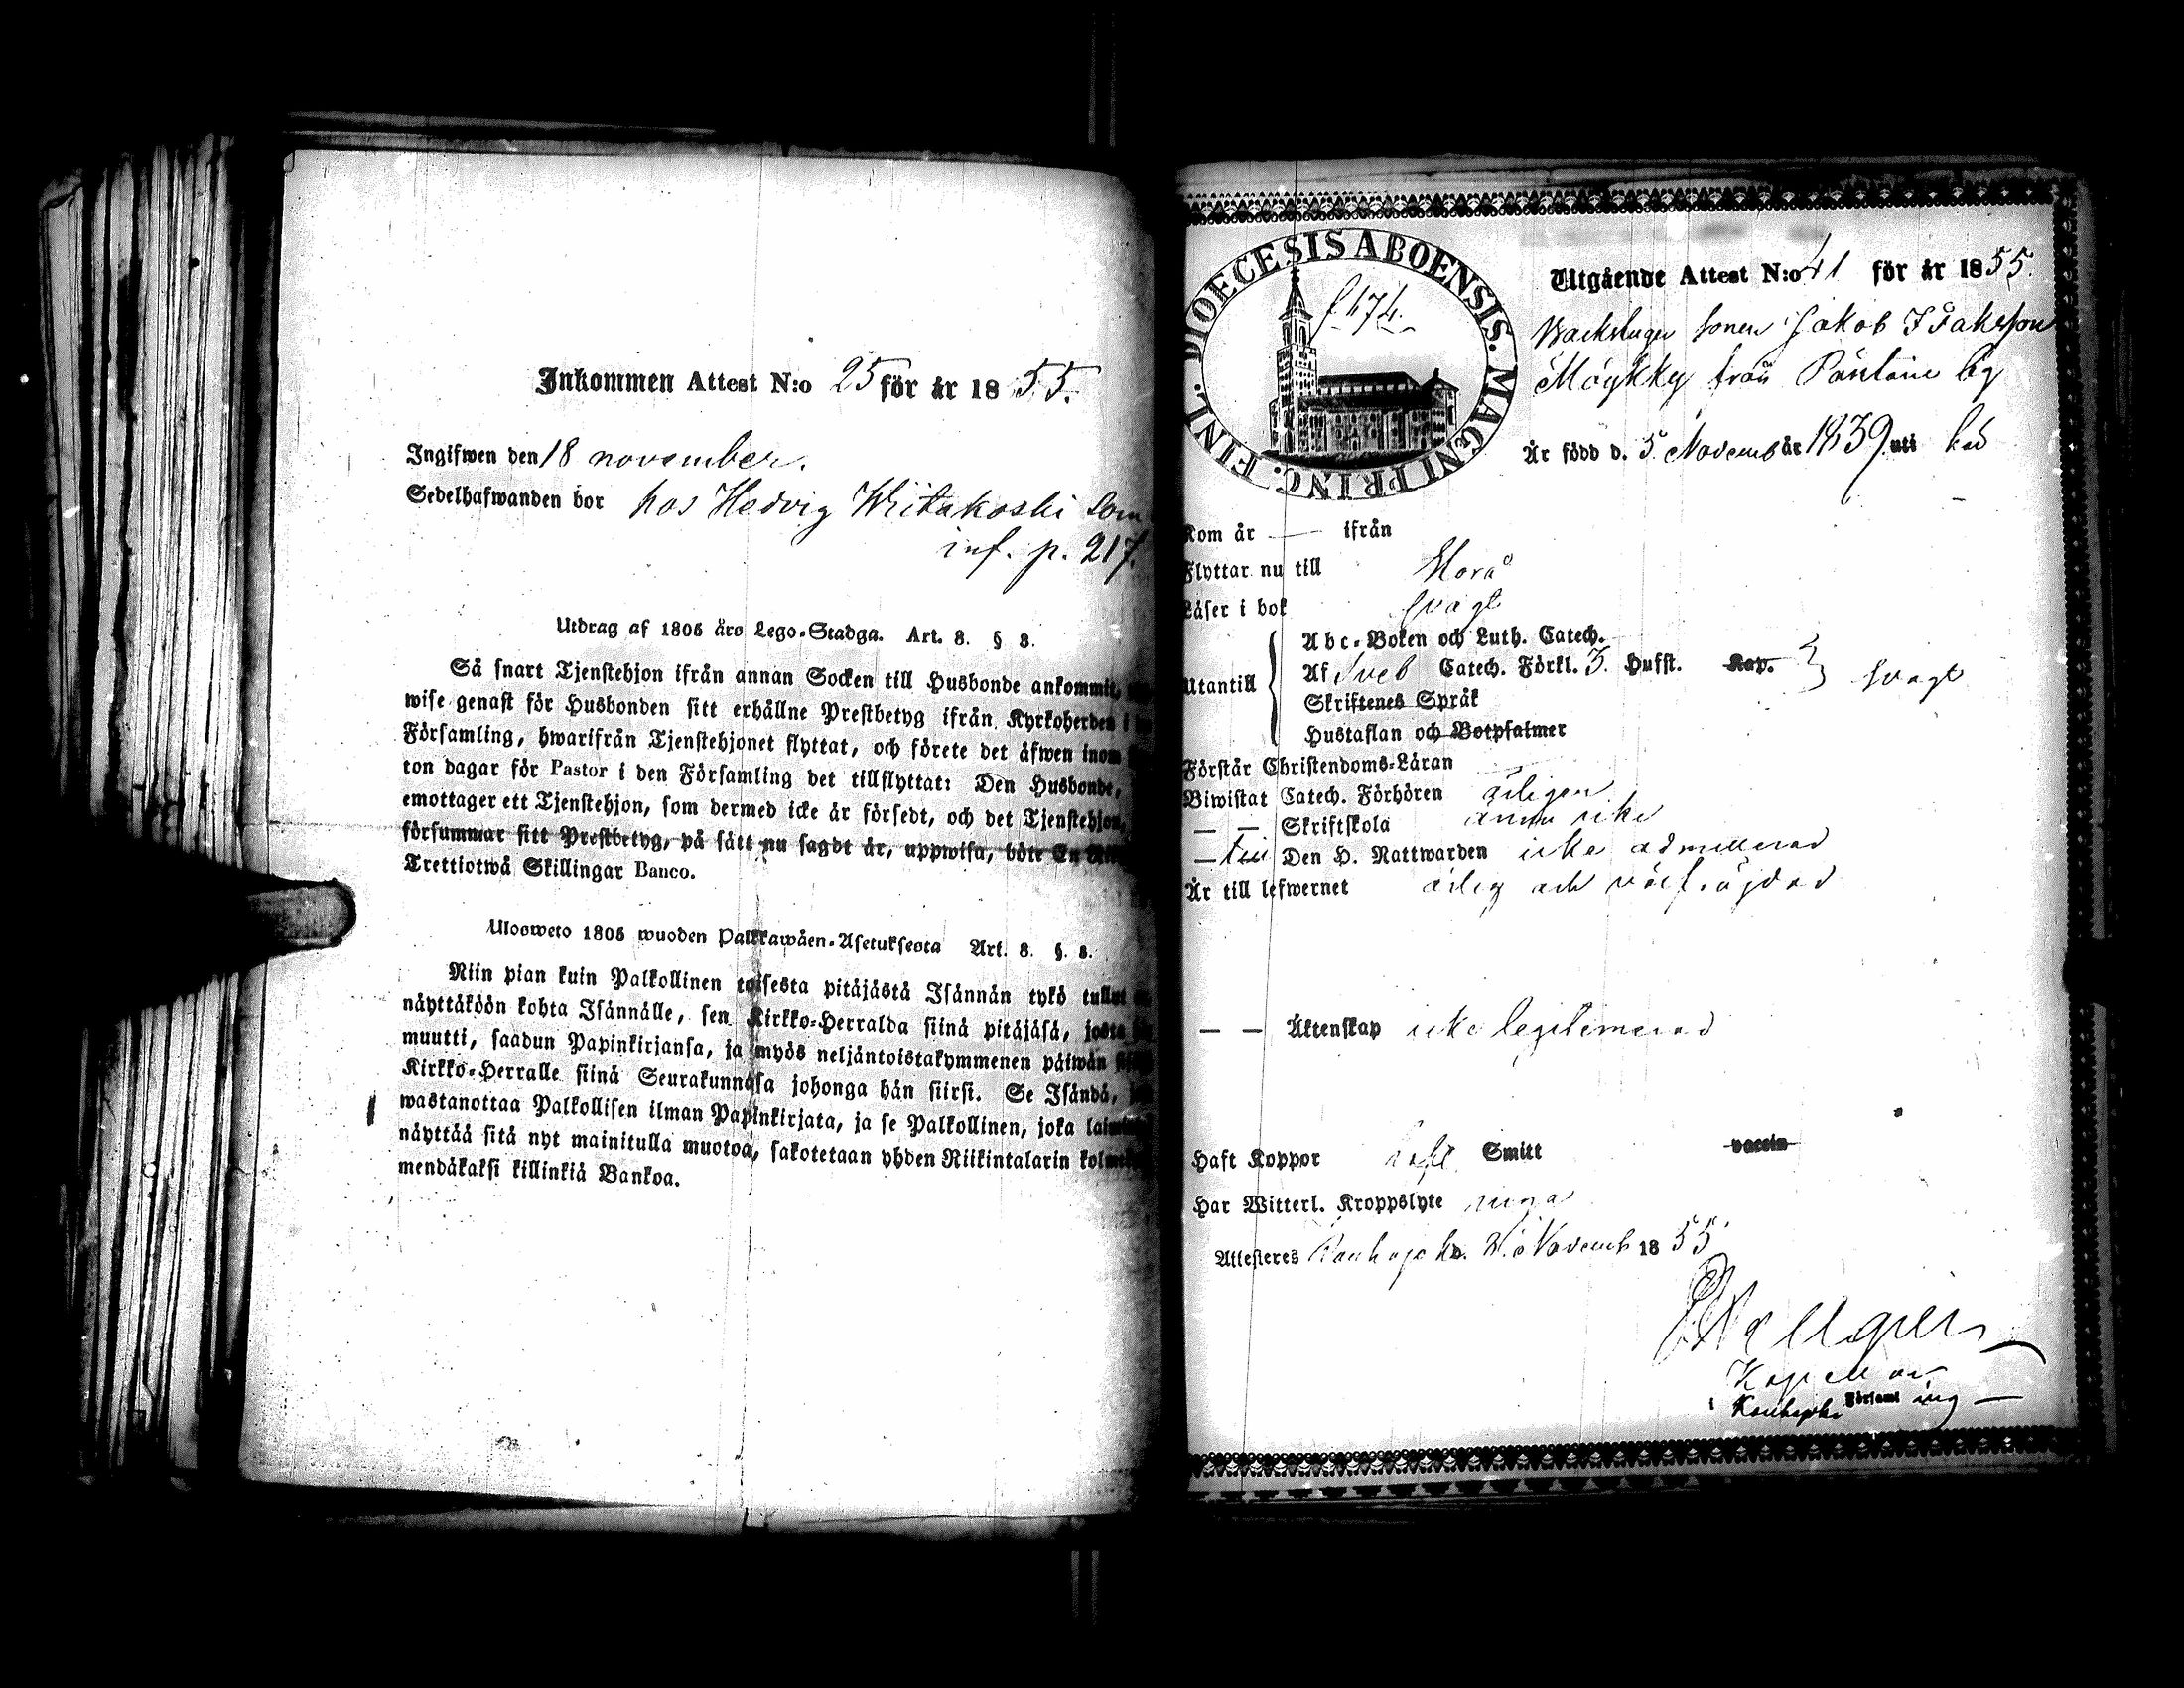 Inkommen Attest N:o 25 för år 1855.
Ingifwen den 18 november.
Sedelhafwanden bor hos Hedvig Writakoski som
inf. p. 217.
Utdrag af 1805 års Lego-Stadga. Art. 8. § 8.
Så snart Tjenstehjon ifrån annan Socken till Husbonde ankommit,
wise genast för Husbonden sitt erhållne Prestbetyg ifrån Kyrkoherden i
Församling, hwarifrån Tjenstehjonet flyttat, och förete det äfwen inom
ton dagar för Pastor i den Församling det tillflyttat: Den Husbonde,
emottager ett Tjenstehjon, som dermed icke är försedt, och det Tjenstehjon,
försummar sitt Prestbetyg, på sätt nu sagdt är, uppwisa, böte En
Trettiotwå Skillingar Banco.
Ulosweto 1805 wuoden Palkkawäen-Asetuksesta Art. 8. §. 8.
Niin pian kuin Palkollinen toisesta pitäjästä Isännän tykö tullut
näyttäköön kohta Isännälle, sen Kirkko-Herralda siinä pitäjäsä, josta
muutti, saadun Papinkirjansa, ja myös neljäntoistakymmenen päiwän
Kirkko-Herralle siinä Seurakunnasa johonga hän siirsi. Se Isändä,
wastanottaa Palkollisen ilman Papinkirjata, ja se Palkollinen, joka
näyttää sitä nyt mainitulla muotoa, sakotetaan yhden Riikintalarin
mendäkaksi killinkiä Bankoa.
DIOECESIS ABOENSIS. MAGNI PRINC. FINL.
f 474.
Utgående Attest N:o 41 för år 1855.
sonen Jakob Isaksson
Möykky från Päntäne by
Är född d. 5 Novemb år 1839 uti
Kom år — ifrån
Flyttar nu till Storå
Läser i bok svagt
Utantill
Abc-Boken och Luth. Catech.
Af Sveb Catech. Förkl. 3. Hufst. Kap. svagt
Skriftenes Språk
Hustaflan och Botpsalmer
Förstår Christendoms-Läran
Biwistat Catech. Förhören årligen
— — Skriftskola ännu icke
— till Den H. Nattwarden icke admitterad
Är till lefwernet ärlig och välfrägdad
— — Äktenskap icke legitimerad
Haft Koppor haft Smitt vaccin
Har Witterl. Kroppslyte inga
Attesteres Kauhajoki d. Novemb 1855
Kapellan
i Kauhajoki Församling